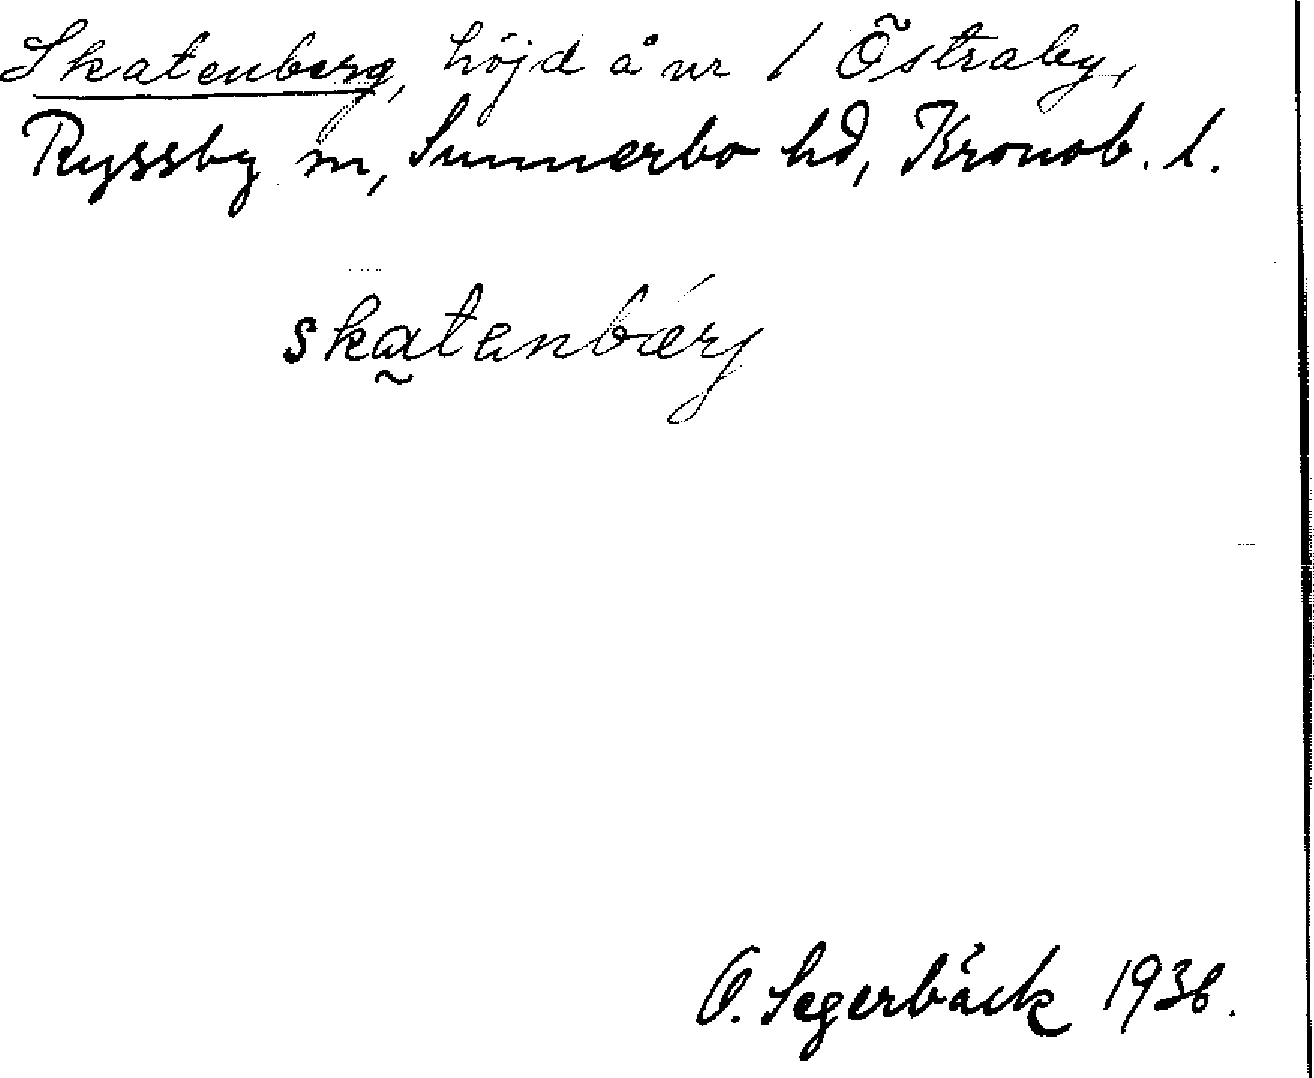 Skatenberg, höjd å nr 1 Östraby,
Ryssby sn, Sunnerbo hd, Kronob. l.
skatanbærj
O. Segerbäck 1936.